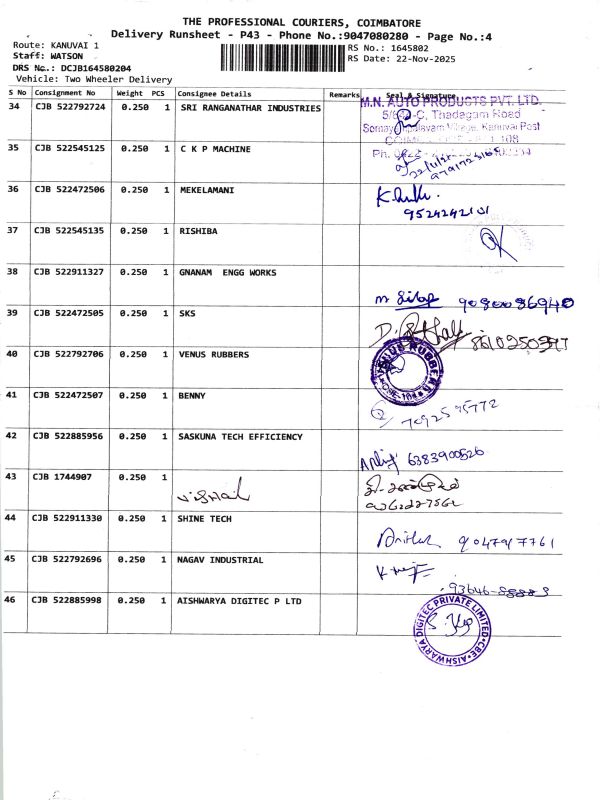 THE PROFESSIONAL COURIERS, COIMBATORE
Delivery Runsheet - P43 - Phone No.:9047080280 - Page No.:4
Route: KANUVAI 1
RS No.: 1645802
Staff: WATSON
RS Date: 22-Nov-2025
DRS No.: DCJB164580204
Vehicle: Two Wheeler Delivery
S No Consignment No Weight PCS Consignee Details Remarks Seal & Signature
34 CJB 522792724 0.250 1 SRI RANGANATHAR INDUSTRIES
M.N. AUTO PRODUCTS PVT. LTD.
Thadagam Road
Kanuvai Post
35 CJB 522545125 0.250 1 C K P MACHINE
36 CJB 522472506 0.250 1 MEKELAMANI
9524242101
37 CJB 522545135 0.250 1 RISHIBA
38 CJB 522911327 0.250 1 GNANAM ENGG WORKS
9080086940
39 CJB 522472505 0.250 1 SKS
40 CJB 522792706 0.250 1 VENUS RUBBERS
VENUS RUBBERS
41 CJB 522472507 0.250 1 BENNY
42 CJB 522885956 0.250 1 SASKUNA TECH EFFICIENCY
6383900526
43 CJB 1744907 0.250 1
44 CJB 522911330 0.250 1 SHINE TECH
9047917761
45 CJB 522792696 0.250 1 NAGAV INDUSTRIAL
46 CJB 522885998 0.250 1 AISHWARYA DIGITEC P LTD
AISHWARYA DIGITEC PRIVATE LIMITED CBE